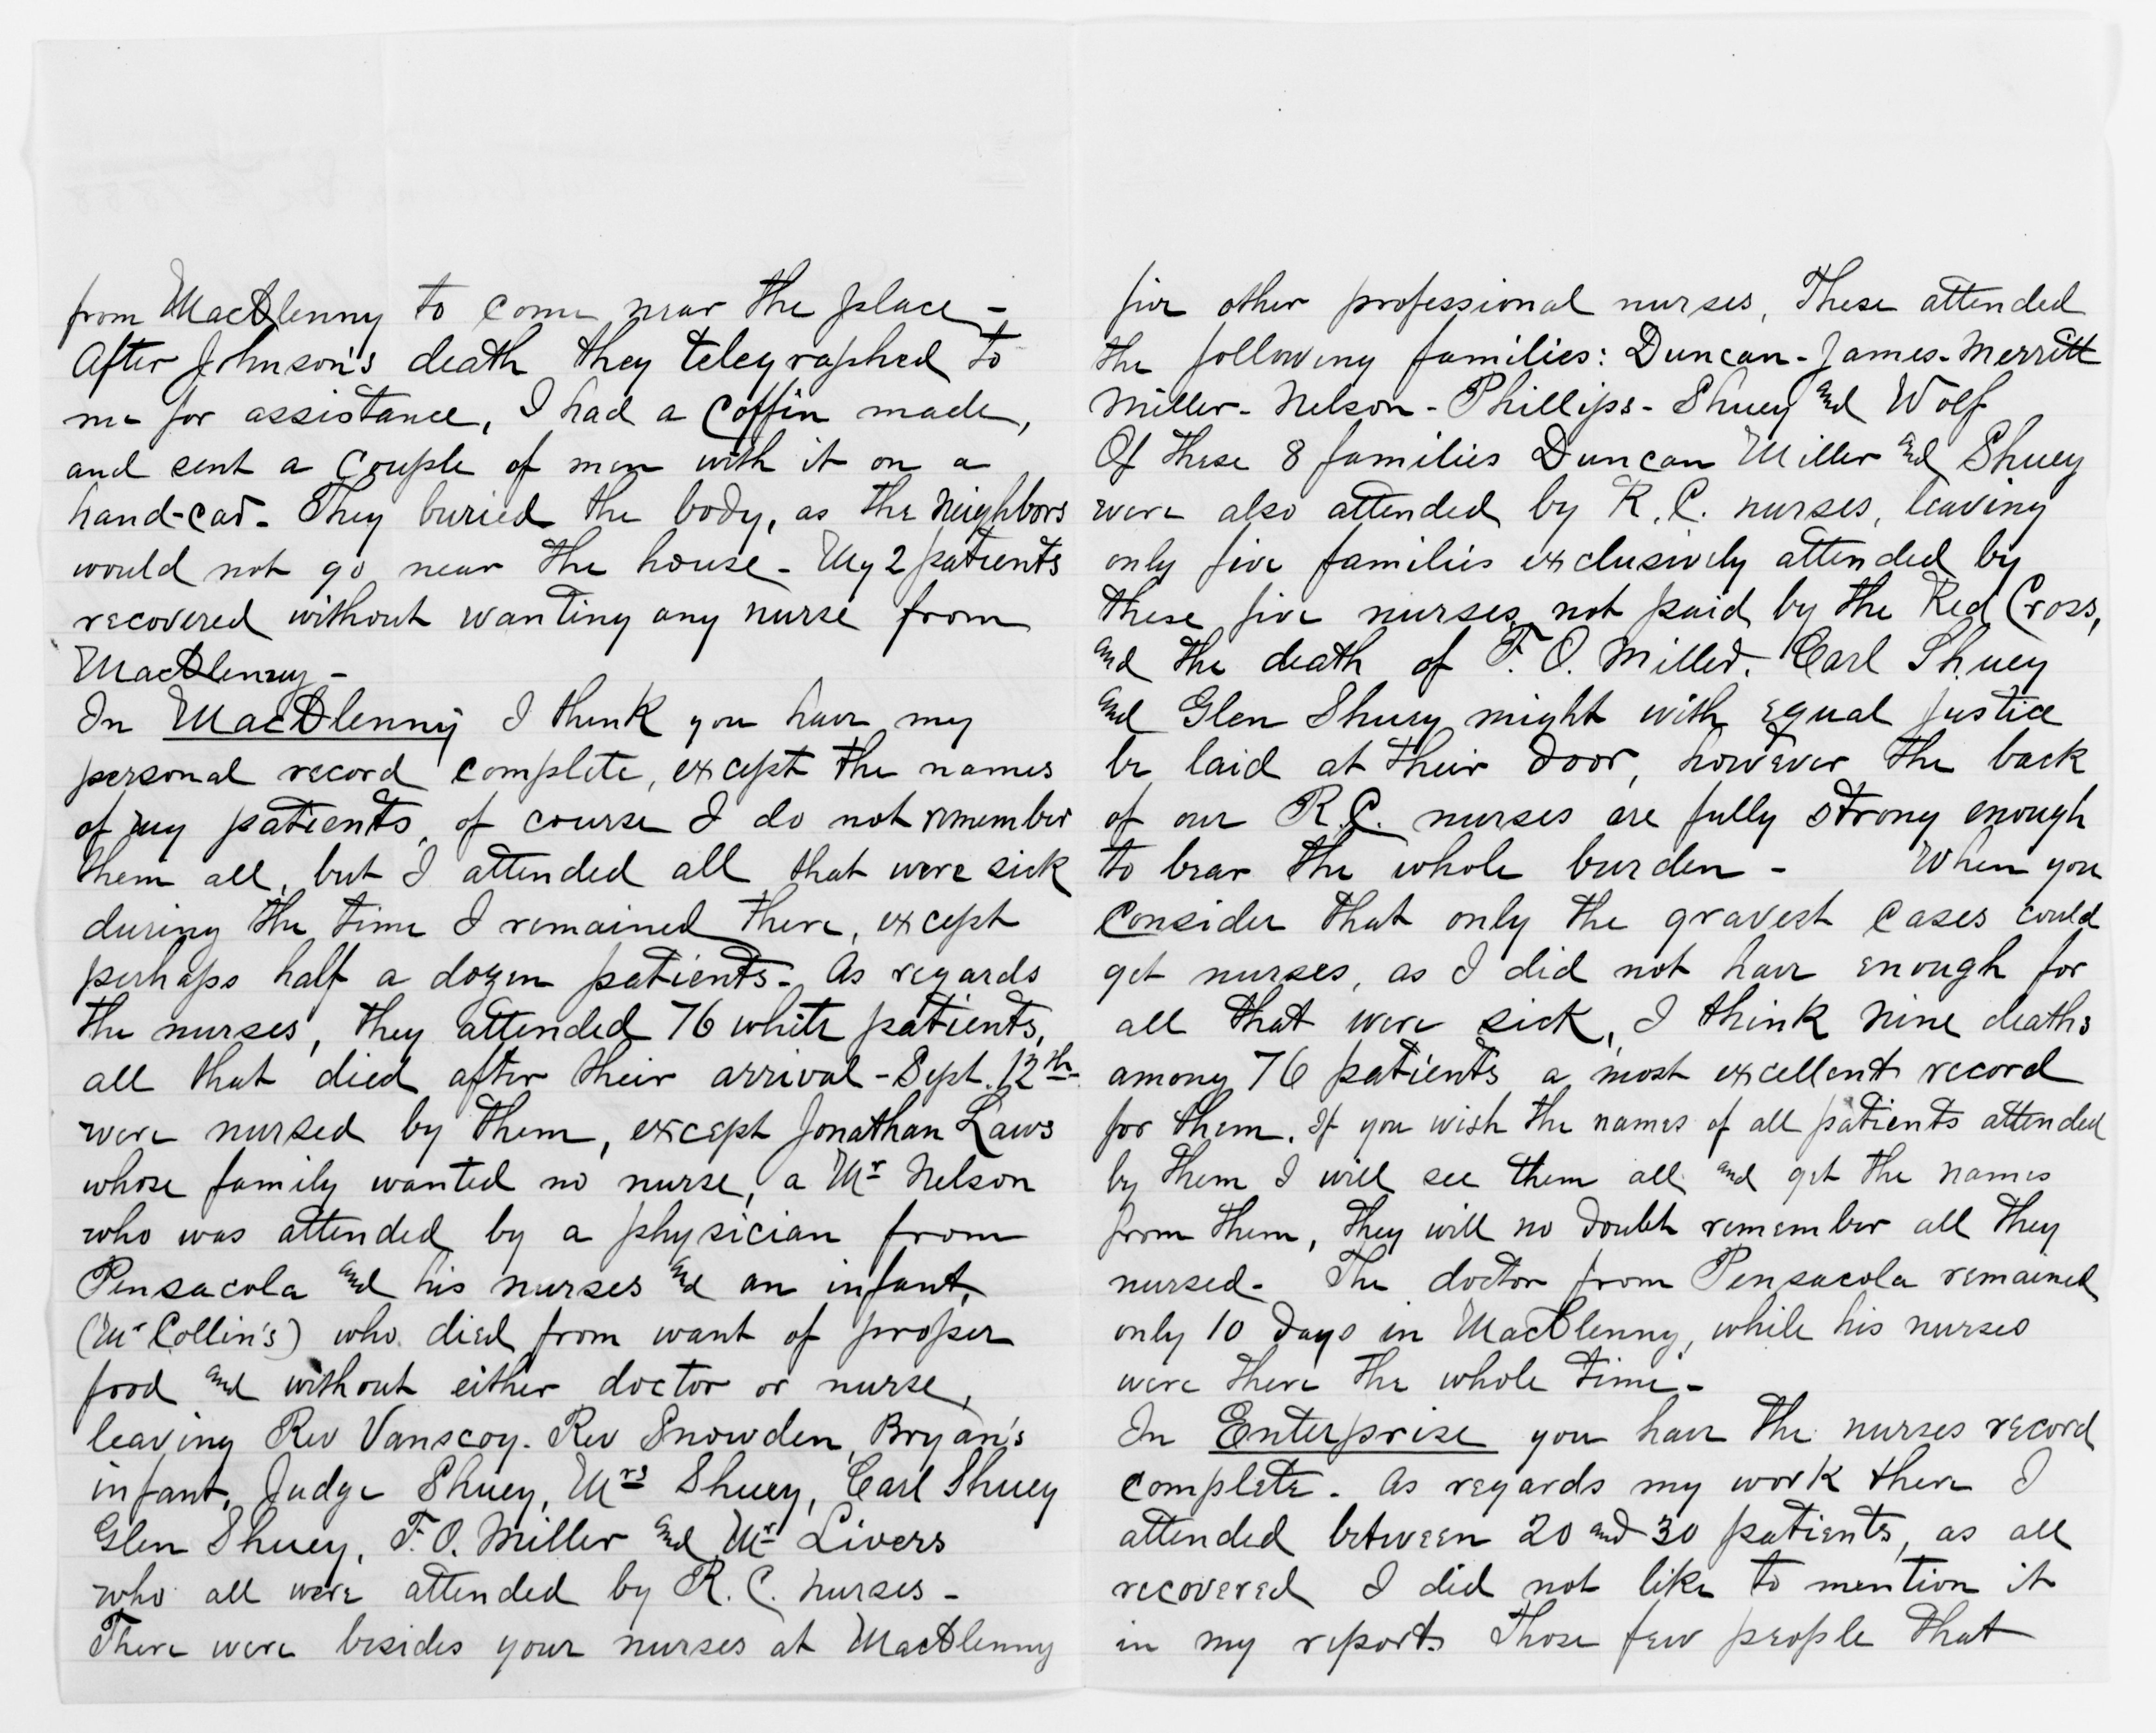 from MacClenny to come near the place -
After Johnson's death they telegraphed to
me for assistance, I had a coffin made,
and sent a couple of men with it on a
hand-car. They buried the body, as the neighbors
would not go near the house - My 2 patients
recovered without wanting any nurse from
MacClenny -
In MacClenny I think you have my
personal record complete, except the names
of my patients, of course I do not remember
them all, but I attended all that were sick
during the time I remained there, except
perhaps half a dozen patients - As regards
the nurses, they attended 76 white patients,
all that died after their arrival - Sept. 12th -
were nursed by them, except Jonathan Laws
whose family wanted no nurse, a Mr Nelson
who was attended by a physician from
Pensacola and his nurses and an infant,
(Mr Collin's) who died from want of proper
food and without either doctor or nurse,
leaving Rev Vanscoy. Rev Snowden, Bryan's
infant, Judge Shuey, Mrs Shuey, Carl Shuey
Glen Shuey, F. O. Miller and Mr Livers
who all were attended by R. C. nurses -
There were besides your nurses at MacClenny
five other professional nurses, These attended
the following families: Duncan - James - Merritt
Miller - Nelson - Phillips - Shuey and Wolf
Of these 8 families Duncan Miller and Shuey
were also attended by R. C. nurses, leaving
only five families exclusively attended by
these five nurses not paid by the Red Cross,
and the death of F. O. Miller. Carl Shuey
and Glen Shuey might with equal justice
be laid at their door, however the back
of our R. C. nurses are fully strong enough
to bear the whole burden - When you
consider that only the gravest cases could
get nurses, as I did not have enough for
all that were sick, I think nine deaths
among 76 patients a most excellent record
for them. If you wish the names of all patients attended
by them I will see them all and get the names
from them, they will no doubt remember all they
nursed - The doctor from Pensacola remained
only 10 days in MacClenny, while his nurses
were there the whole time -
In Enterprise you have the nurses record
complete - As regards my work there I
attended between 20 and 30 patients, as all
recovered I did not like to mention it
in my reports Those few people that